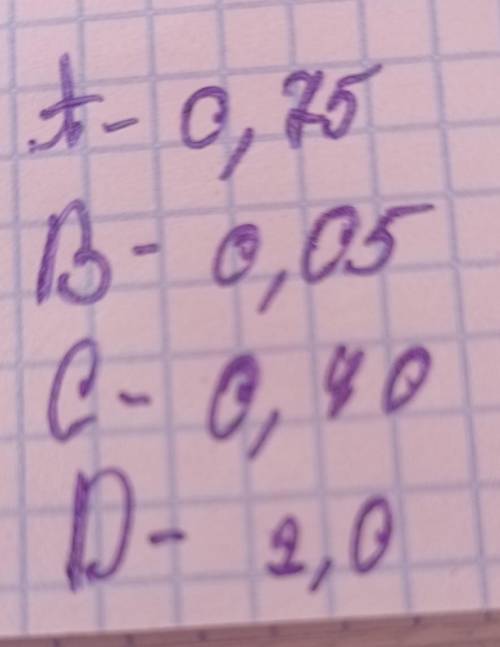 A - 0,75
B - 0,05
C - 0,40
D - 2,0